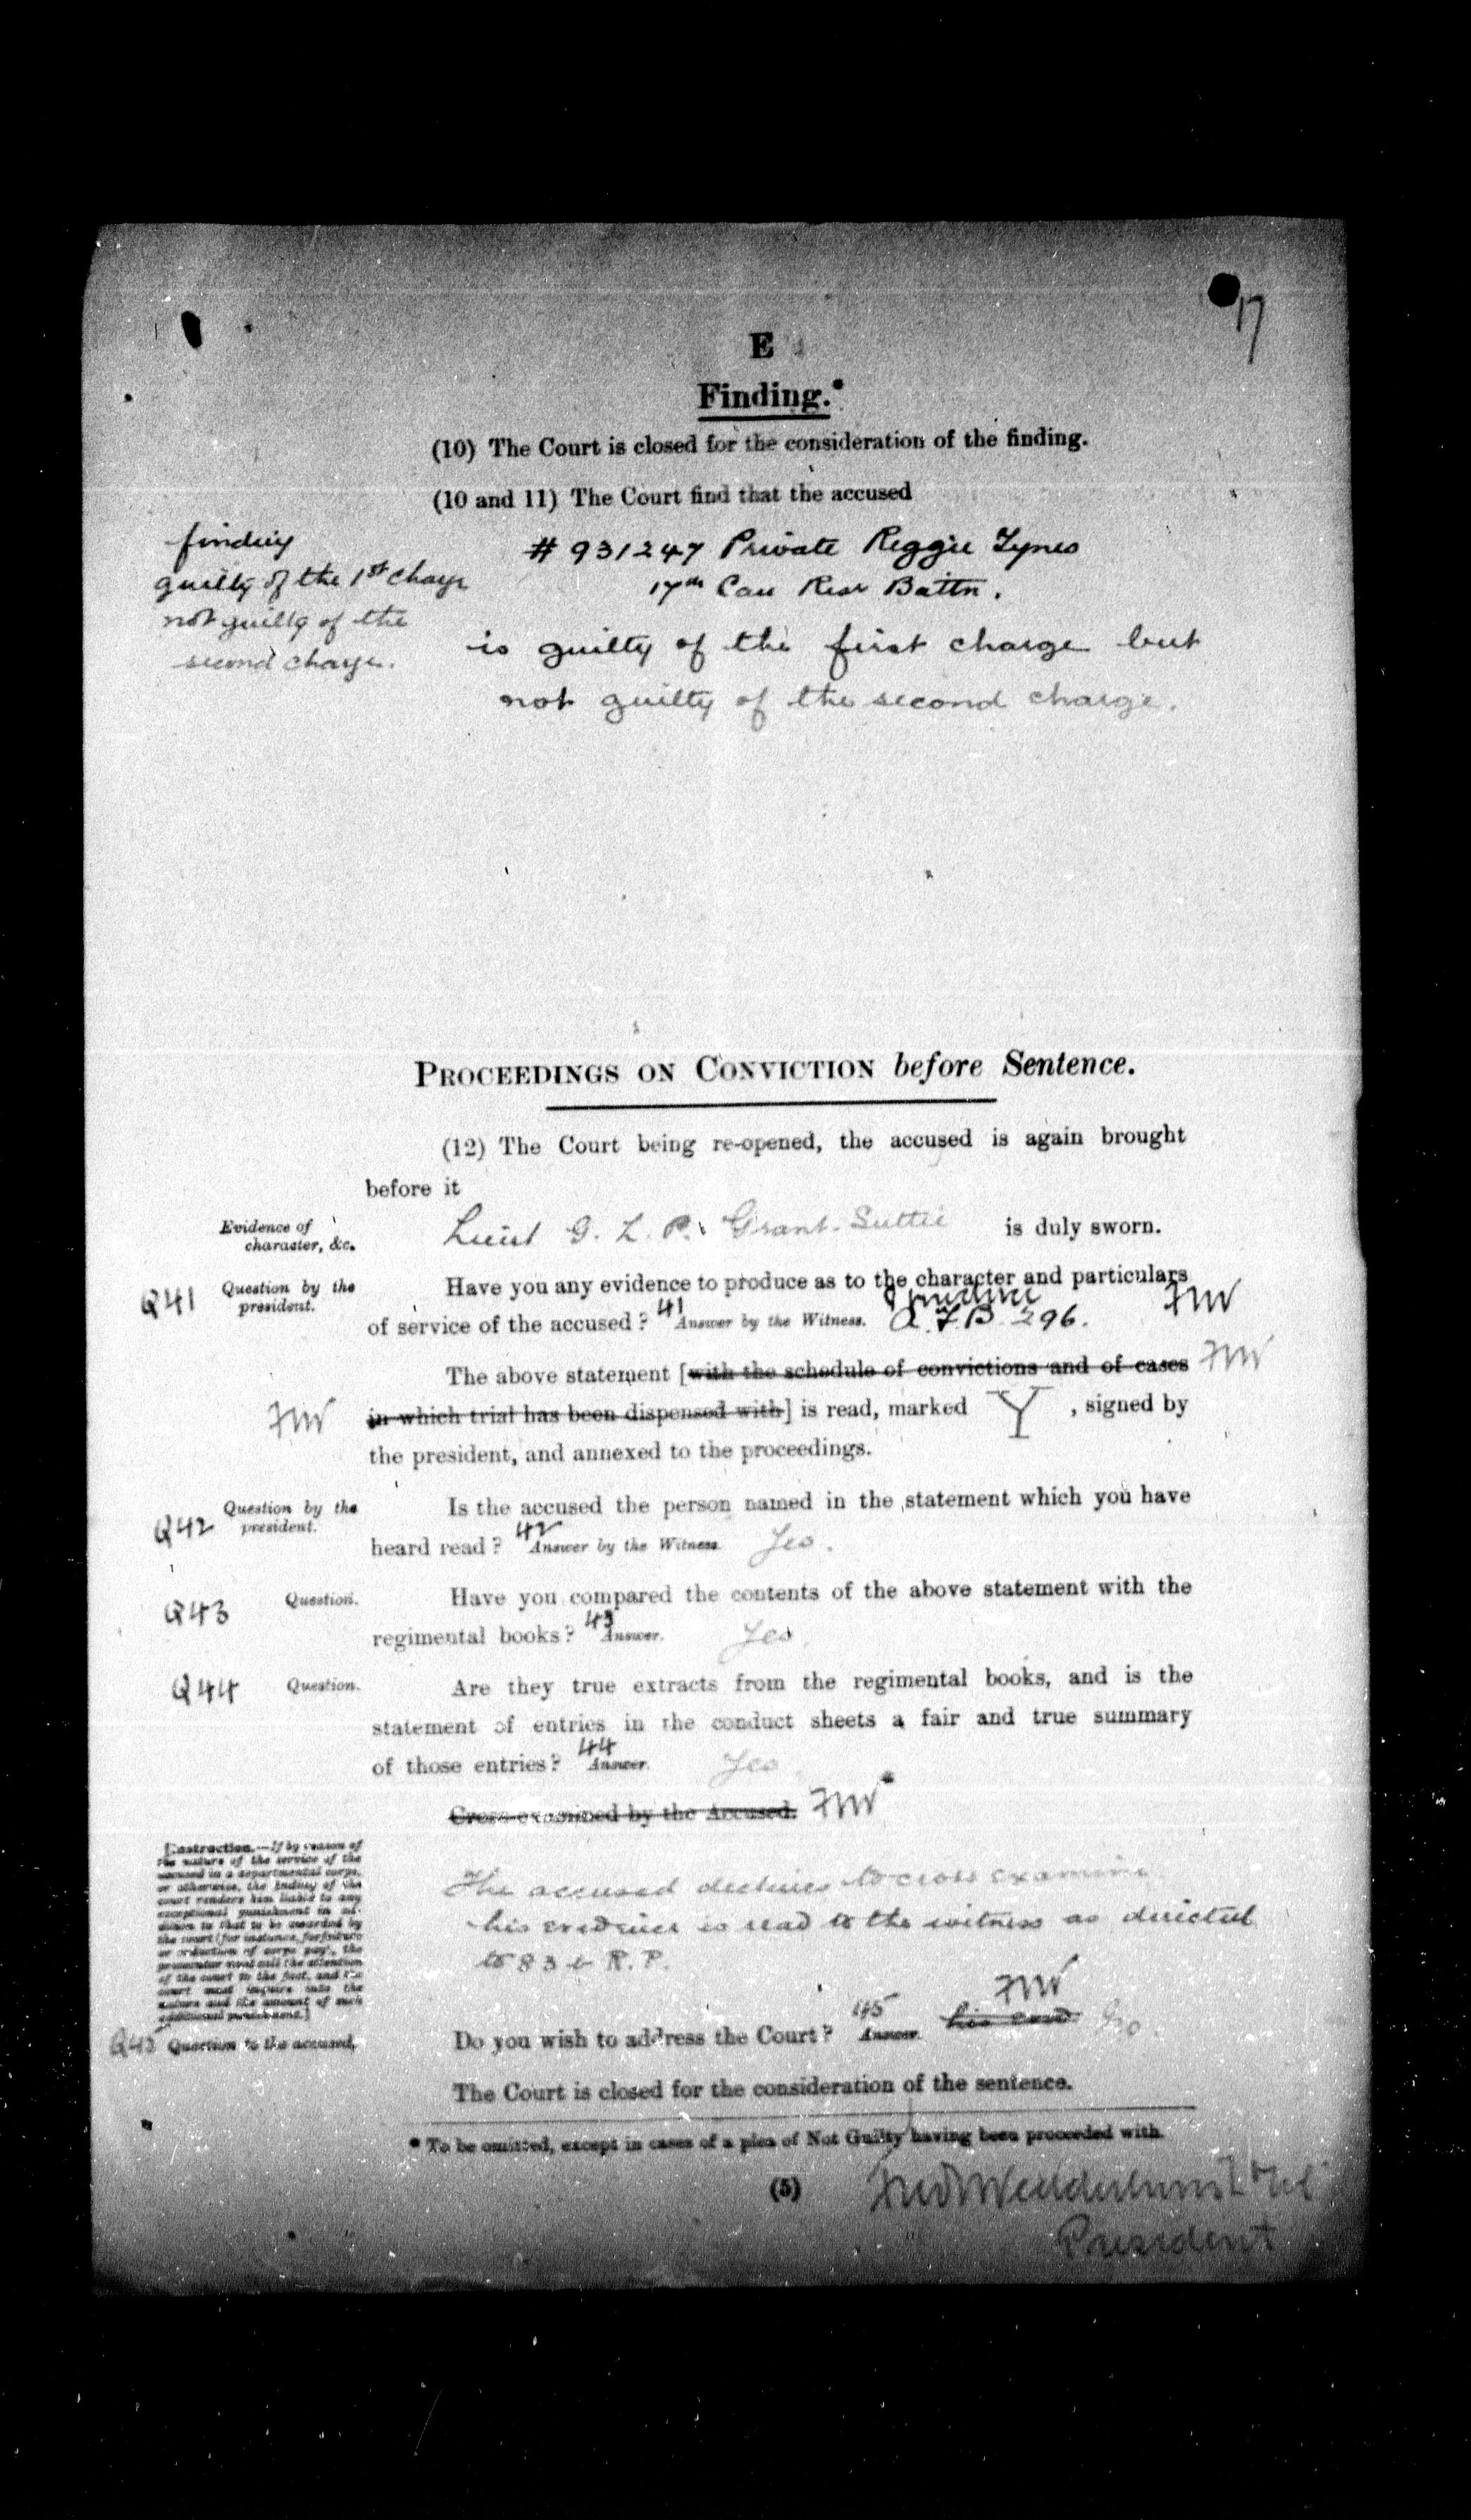 17
E
Finding.*
(10) The Court is closed for the consideration of the finding.
(10 and 11) The Court find that the accused
finding
guilty of the 1st charge
not guilty of the
second charge.
# 931247 Private Reggie Tynes
17th Can Resr Battn.
is guilty of the first charge but
not guilty of the second charge.
PROCEEDINGS ON CONVICTION before Sentence.
(12) The Court being re-opened, the accused is again brought
before it
Evidence of
character, &c.
Lieut G. L. P. Grant-Suttie is duly sworn.
Q41 Question by the
president.
Have you any evidence to produce as to the character and particulars
of service of the accused? 41 Answer by the Witness. I produce A.F.B. 296. FW
The above statement [with the schedule of convictions and of cases FW
FW in which trial has been dispensed with] is read, marked Y, signed by
the president, and annexed to the proceedings.
Q42 Question by the
president.
Is the accused the person named in the statement which you have
heard read? 42 Answer by the Witness. Yes.
Q43 Question.
Have you compared the contents of the above statement with the
regimental books? 43 Answer. Yes
Q44 Question.
Are they true extracts from the regimental books, and is the
statement of entries in the conduct sheets a fair and true summary
of those entries? 44 Answer. Yes
Cross-examined by the Accused. FW
[Instruction.—If by reason of
the nature of the service of the
accused in a departmental corps,
or otherwise, the finding of the
court renders him liable to any
exceptional punishment in ad-
dition to that to be awarded by
the court (for instance, forfeiture
or reduction of corps pay), the
prosecutor must call the attention
of the court to the fact, and the
court must inquire into the
nature and the amount of such
additional punishment.]
The accused declines to cross examine
his evidence is read to the witness as directed
to 83 b R. P.
FW
Q45 Question to the accused,
Do you wish to address the Court? 45 Answer. his evid No
The Court is closed for the consideration of the sentence.
* To be omitted, except in cases of a plea of Not Guilty having been proceeded with.
(5)
Wedderburn Lt Col
President